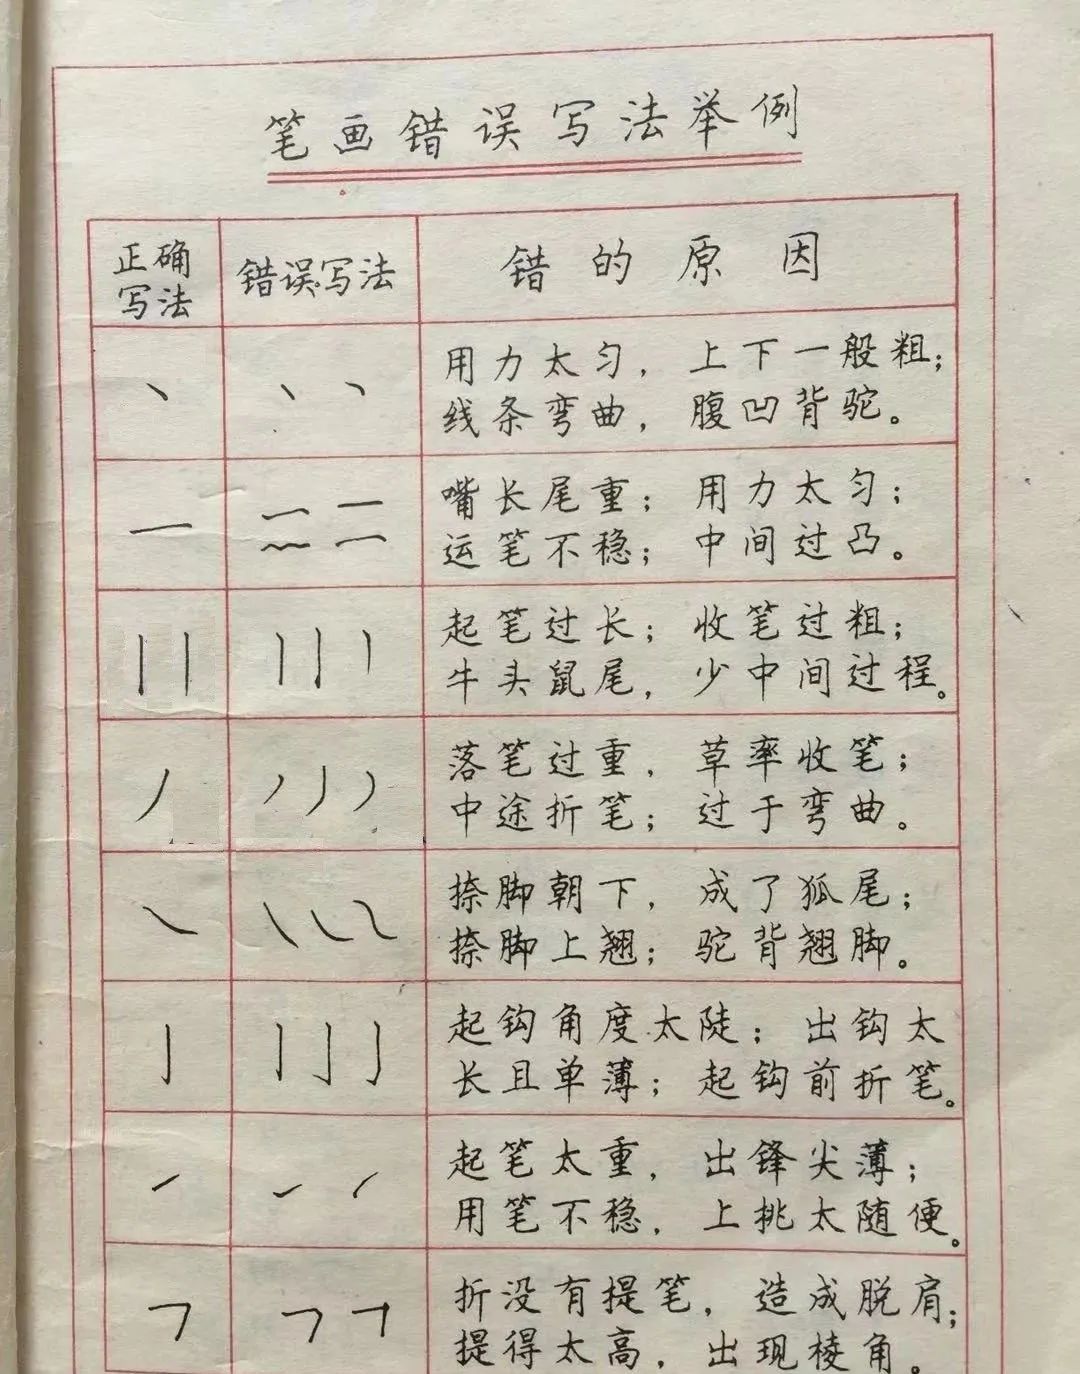 笔画错误写法举例
正确写法 错误写法 错的原因
用力太匀，上下一般粗；
线条弯曲，腹凹背驼。
嘴长尾重；用力太匀；
运笔不稳；中间过凸。
起笔过长；收笔过粗；
牛头鼠尾，少中间过程。
落笔过重，草率收笔；
中途折笔；过于弯曲。
捺脚朝下，成了狐尾；
捺脚上翘；驼背翘脚。
起钩角度太陡；出钩太
长且单薄；起钩前折笔。
起笔太重，出锋尖薄；
用笔不稳，上挑太随便。
折没有提笔，造成脱肩；
提得太高，出现棱角。